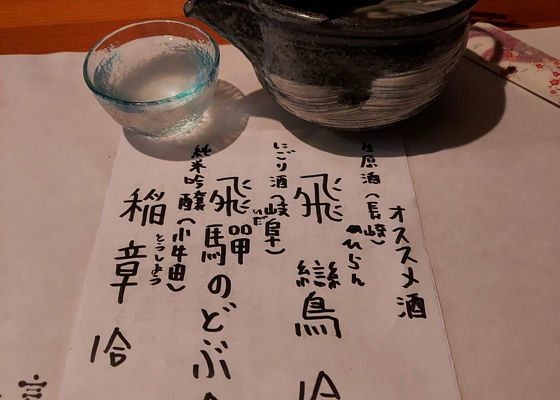 オススメ酒
生原酒(長崎)
飛鸞 1合
ひらん
にごり酒(岐阜)
飛驒のどぶ
純米吟醸(小牛田)
稲章 1合
とうしょう